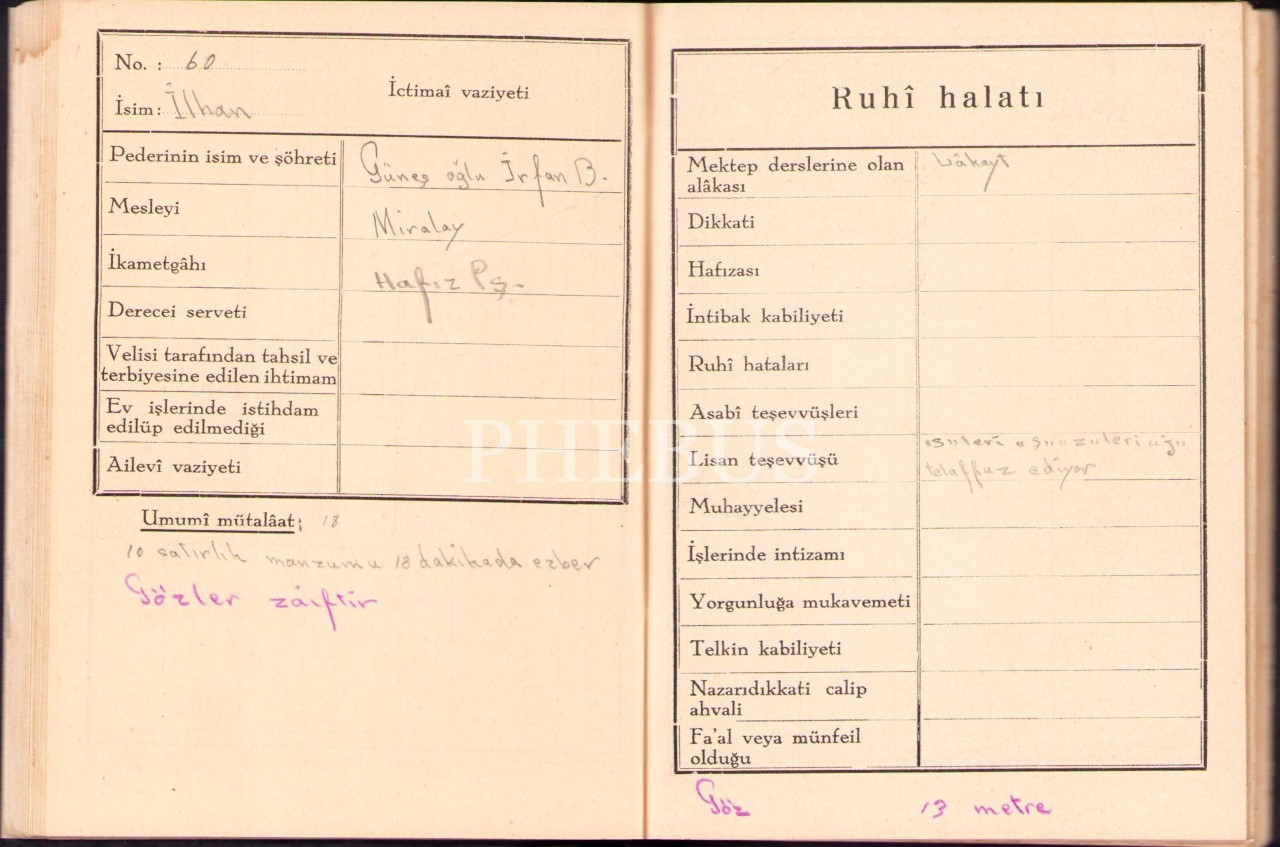 No. : 60
İsim: İlhan
İctimaî vaziyeti
Pederinin isim ve şöhreti Güneş oğlu İrfan B.
Mesleyi Miralay
İkametgâhı Hafız Pş.
Derecei serveti
Velisi tarafından tahsil ve
terbiyesine edilen ihtimam
Ev işlerinde istihdam
edilüp edilmediği
Ailevî vaziyeti
Umumî mütalâat: 18
10 satırlık manzumu 18 dakikada ezber
Gözler zâiftir
Ruhî halatı
Mektep derslerine olan Lâkayt
alâkası
Dikkati
Hafızası
İntibak kabiliyeti
Ruhî hataları
Asabî teşevvüşleri
Lisan teşevvüşü
telaffuz ediyor
Muhayyelesi
İşlerinde intizamı
Yorgunluğa mukavemeti
Telkin kabiliyeti
Nazarıdıkkati calip
ahvali
Fa'al veya münfeil
olduğu
Göz 13 metre
PHEBUS